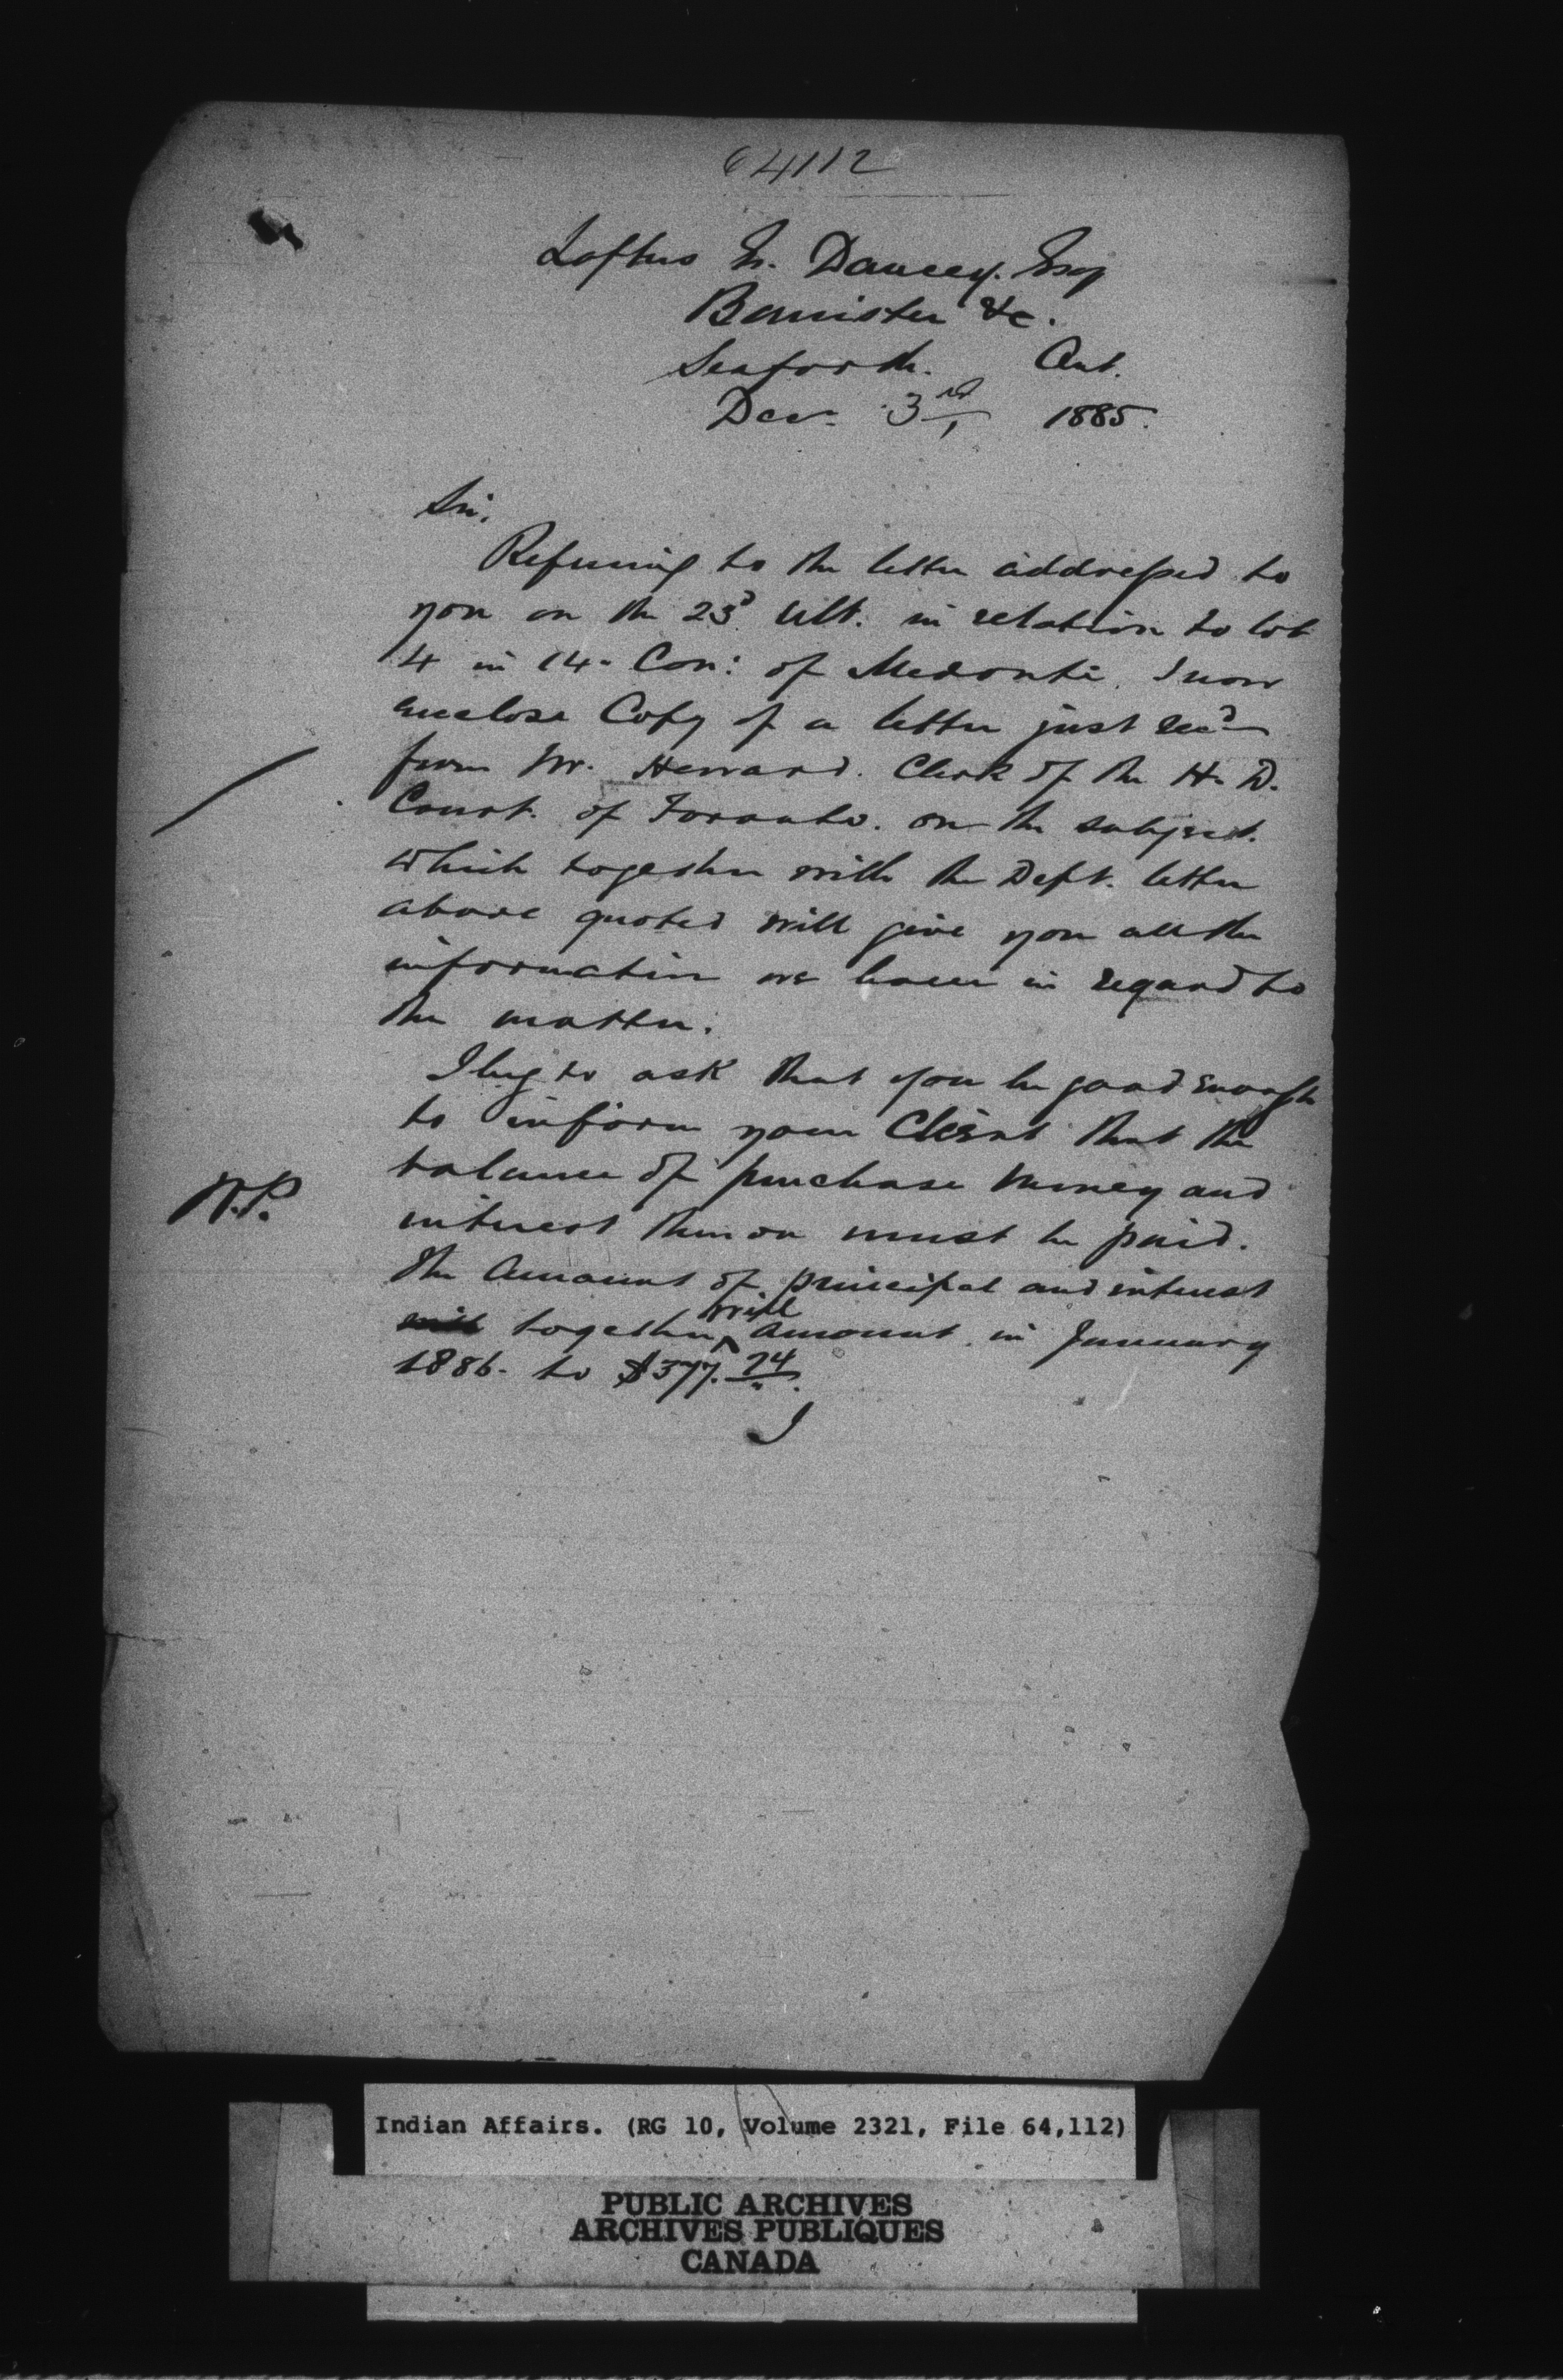 64112
Loftus E. Dancey. Esq
Barrister &c.
Seaforth. Ont.
Dec. 3rd, 1885.
Sir,
Referring to the letter addressed to
you on the 23d Ult. in relation to lot
4 in 14. Con: of Medonte. I now
enclose Copy of a letter just recd
from Mr. Heward. Clerk of the H. D.
Court. of Toronto. on the subject.
which together with the Dept. letter
above quoted will give you all the
information we have in regard to
the matter.
I beg to ask that you be good enough
to inform your Client that the
balance of purchase money and
N.P.
interest thereon must be paid.
The Amount of principal and interest
together will amount in January
1886. to $377.74.
I
Indian Affairs. (RG 10, Volume 2321, File 64,112)
PUBLIC ARCHIVES
ARCHIVES PUBLIQUES
CANADA